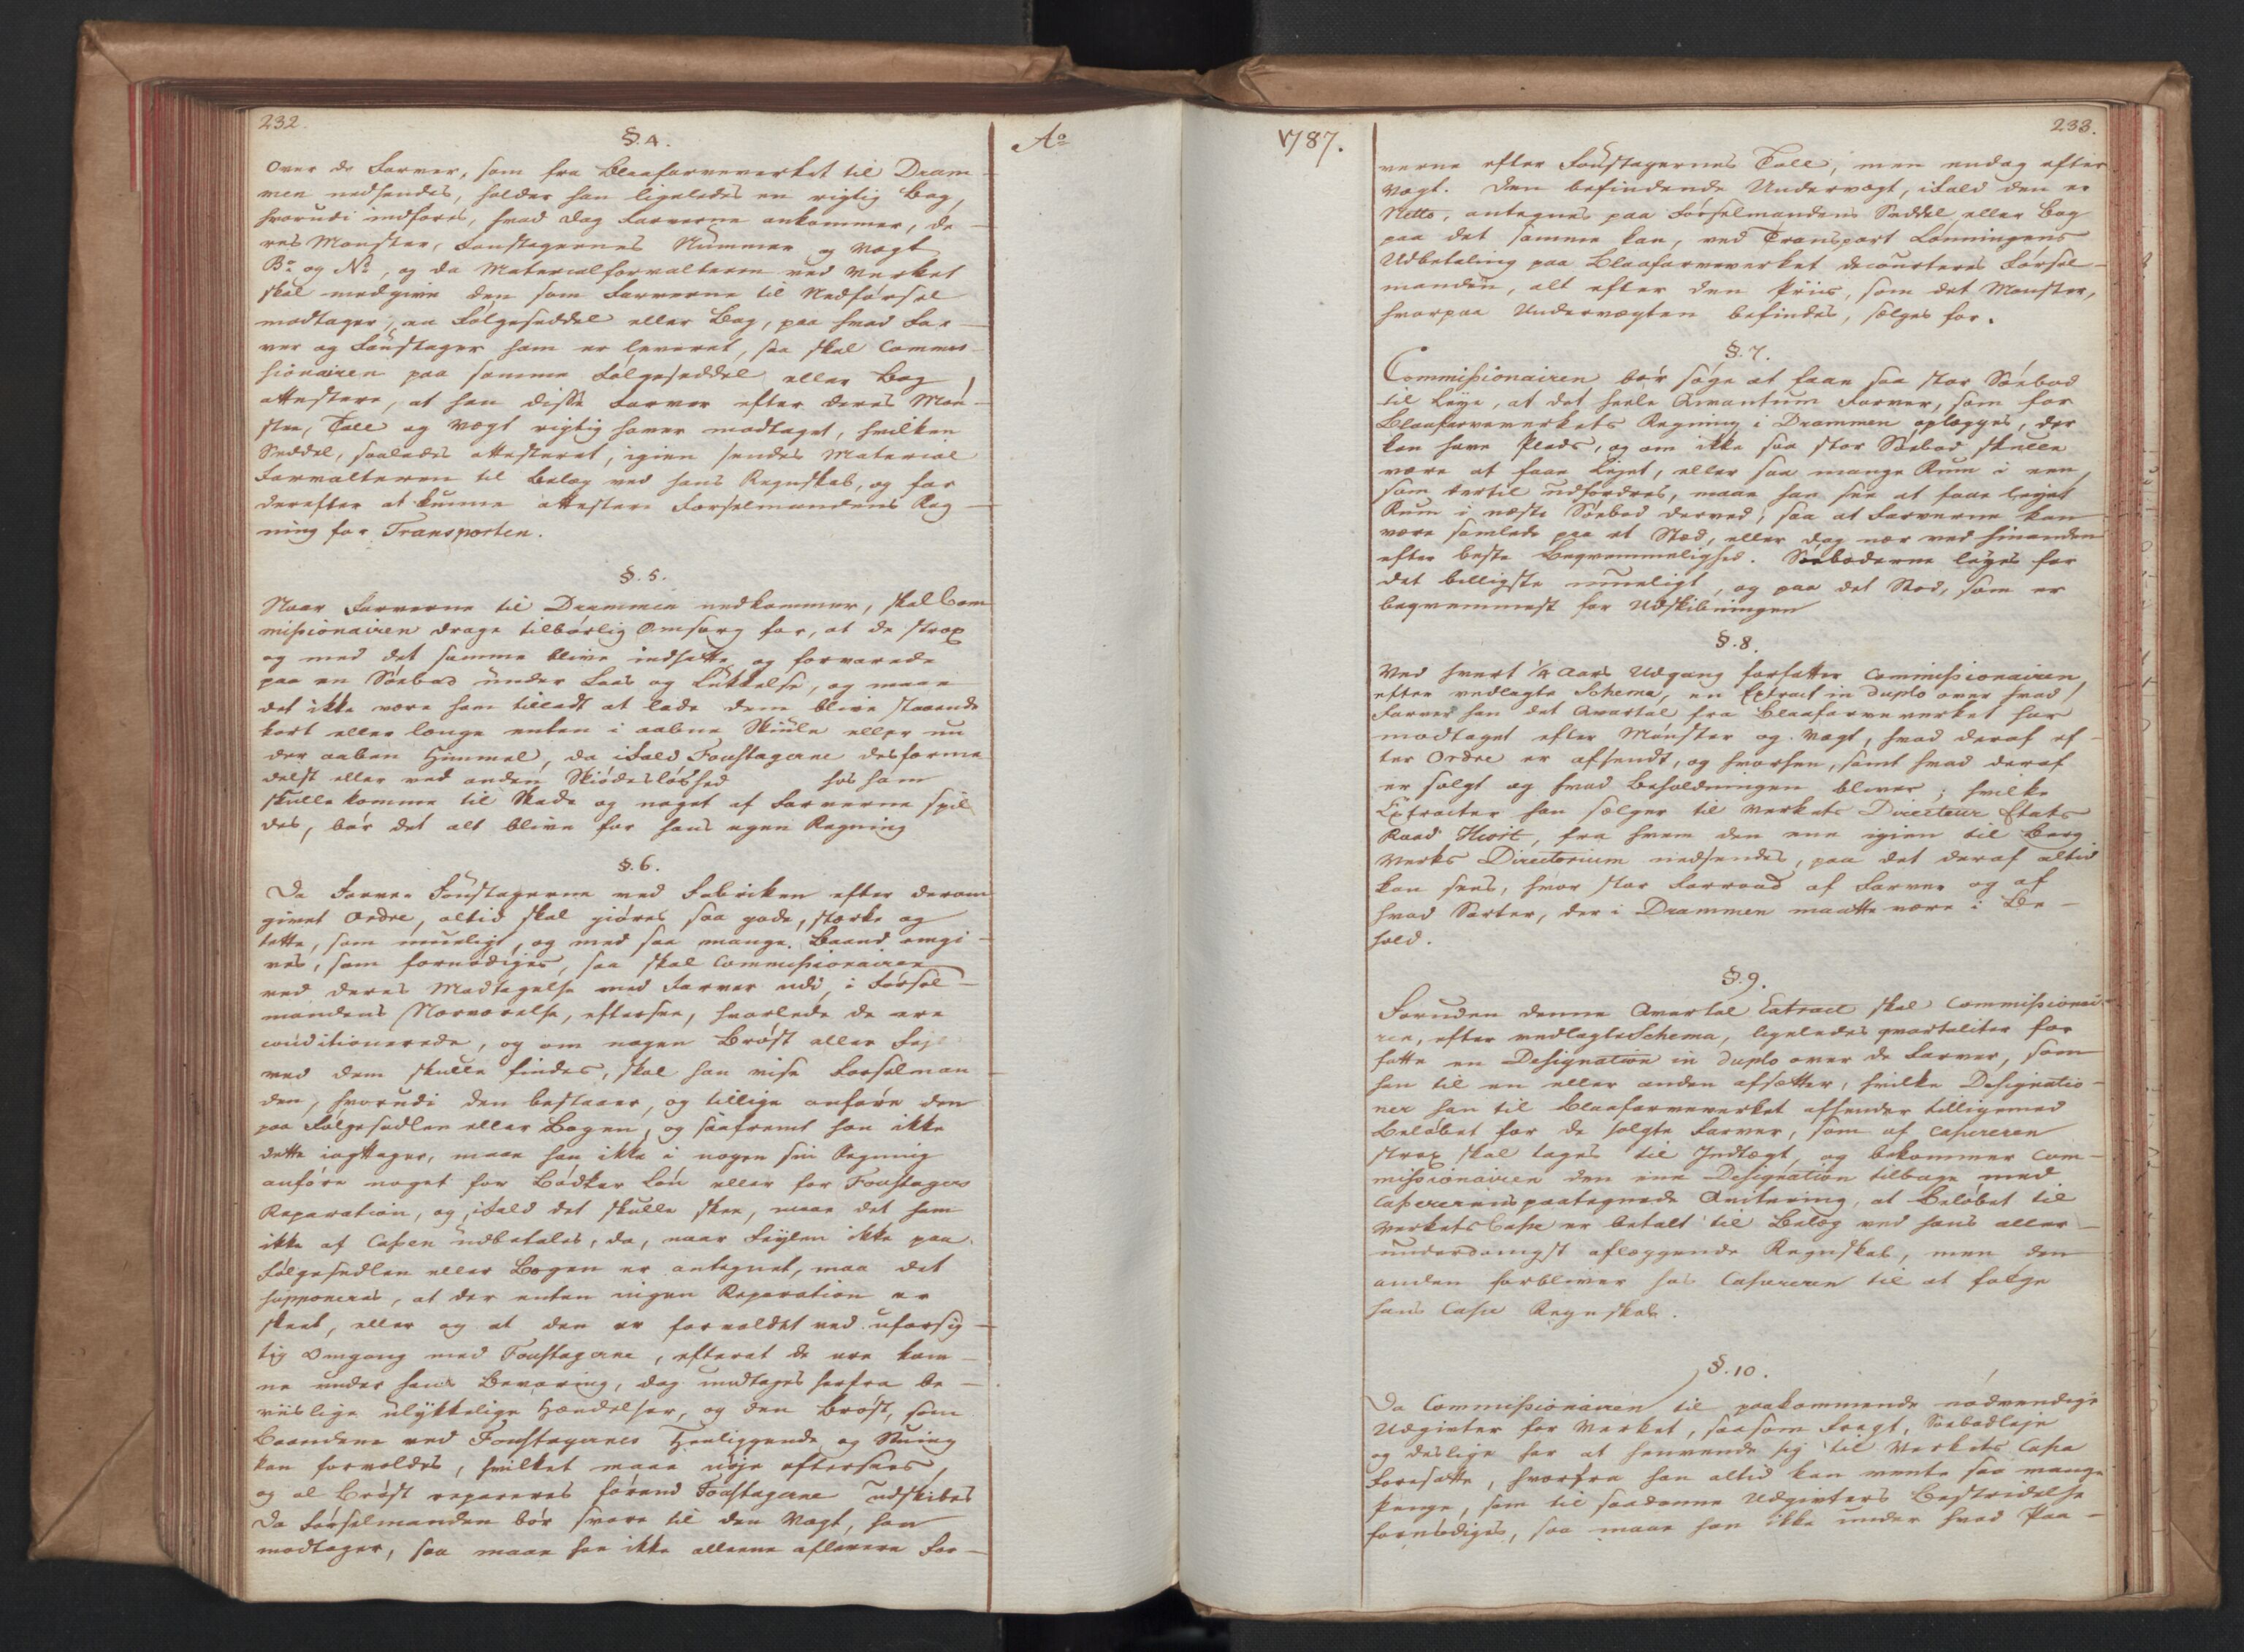 232.
§. 4.
Over de Farver, som fra Blaafarveverket til Dram-
men nedsendes, holder han ligeledes en rigtig Bog,
hvorudi indføres, hvad Dag Farverne ankommer, de-
res Mønster, Foustagernes Nummer og Vægt
Bo og No, og da Materialforvalteren ved Verket
skal medgive den som Farverne til Nedførsel
modtager, en Følgeseddel eller Bog, paa hvad Far-
ver og Foustager ham er leveret, saa skal Commis-
sionairen paa samme Følgeseddel eller Bog
attestere, at han disse Farver efter deres Møn-
stre, Tall og Vægt rigtig haver modtaget, hvilken
Seddel, saaledes attesteret, igien sendes Material
Forvalteren til Belæg ved hans Regnskab, og for
derefter at kunne attestere Førselmandens Reg-
ning for Transporten.
§. 5.
Naar Farverne til Drammen nedkommer, skal Com
missionairen drage tilbørlig Omsorg for, at de strax
og med det samme blive indsatte og forvarede
paa en Søebod under Laas og Lukkelse, og maae
det ikke være ham tilladt at lade dem blive staaende
kort eller længe enten i aabne Skiule eller un
der aaben Himmel, da ifald Foustagerne desforme
delst eller ved anden Skiødesløshed hos ham
skulle komme til Skade og noget af Farverne spil
des, bør det alt blive for hans egen Regning
§. 6.
Da Farve Foustagerne ved Fabriken efter derom
givet Ordre, altid skal giøres saa gode, stærke og
tætte, som mueligt, og med saa mange Baand omgi-
ves, som fornødiges, saa skal Commissionairen
ved deres Modtagelse med Farver udi, i Førsel-
mandens Nærværelse, eftersee, hvorledes de ere
conditionerede, og om nogen Brøst eller Fejl
ved dem skulle findes, skal han vise Førselman-
den, hvorudi den bestaaer, og tillige anføre den
paa Følgesedlen eller Bogen, og saafremt han ikke
dette iagttager, maae han ikke i nogen sin Regning
anføre noget for Bødker Løn eller for Foustagers
Reparation, og, ifald det skulle skee, maae det ham
ikke af Cassen udbetales, da, naar Fejlen ikke paa
Følgesedlen eller Bogen er antegnet, maa det
supponeres, at der enten ingen Reparation er
skeet, eller og at den er forvoldet ved uforsig-
tig Omgang med Foustagerne, efterat de ere kom-
ne under hans Bevaring, dog undtages herfra be-
viislige ulykkelige Hændelser, og den Brøst, som
Baandene ved Foustagernes Henliggende og Stuing
kan forvoldes, hvilket maae nøje eftersees,
og al Brøst repareres førend Foustagerne udskibes
Da Førselmanden bør svare til den Vægt, han
modtager, saa maae han ikke alleene aflevere Far-
Ao
1787.
233.
verne efter Foustagernes Tall, men endog efter
Vægt. Den befindende Undervægt, ifald den er
Netto, antegnes paa Førselmandens Seddel eller Bog
paa det samme kan, ved Transport Lønningens
Udbetaling paa Blaafarveverket decourteres Førsel-
manden, alt efter den Priis, som det Mønster,
hvorpaa Undervægten befindes, sælges for.
§. 7.
Commissionairen bør søge at faae saa stor Søebod
til Leye, at det heele Qvantum Farver, som for
Blaafarveverkets Regning i Drammen oplægges, der
kan have Plads, og om ikke saa stor Søebod skulle
være at faae lejet, eller saa mange Rum i een,
som dertil udfordres, maae han see at faae lejet
Rum i næste Søebod derved, saa at Farverne kan
være samlede paa et Stæd, eller dog nær ved hinanden
efter beste Beqvemmelighed. Søeboderne lejes for
det billigste mueligt, og paa det Sted, som er
beqvemmest for Udskibningen
§. 8.
Ved hvert 1/4 Aars Udgang forfatter Commissionairen,
efter vedlagte Schema, en Extract in duplo over hvad
Farver han det Qvartal fra Blaafarveverket har
modtaget efter Mønster og Vægt, hvad deraf ef-
ter Ordre er afsendt, og hvorhen, samt hvad deraf
er solgt og hvad Beholdningen bliver; hvilke
Extracter han følger til Verkets Directeur Etats
Raad Hiort, fra hvem den ene igien til Berg
Verks Directorium nedsendes, paa det deraf altid
kan sees, hvor stor Forraad af Farver og af
hvad Sorter, der i Drammen maatte være i Be-
hold.
§. 9.
Foruden denne Qvartal Extract skal Commissionai-
ren, efter vedlagte Schema, ligeledes qvartaliter for
fatte en Designation in duplo over de Farver, som
han til en eller anden afsætter, hvilke Designatio-
ner han til Blaafarveverket afsender tilligemed
Beløbet for de solgte Farver, som af Cassereren
strax skal tages til Indtægt, og bekommer Com-
missionairen den ene Designation tilbage med
Cassererens paategnede Qvitering, at Beløbet til
Verkets Casse er betalt til Belæg ved hans aller-
underdanigst aflæggende Regnskab, men den
anden forbliver hos Cassereren til at følge
hans Casse Regnskab.
§. 10.
Da Commissionairen til paakommende nødvendige
Udgivter for Verket, saasom Fragt, Søebodleje
og deslige har at henvende sig til Verkets Casse
Foresatte, hvorfra han altid kan vente saa mange
Penge, som til saadanne Udgivters Bestridelse
fornødiges, saa maae han ikke under hvad Paa-